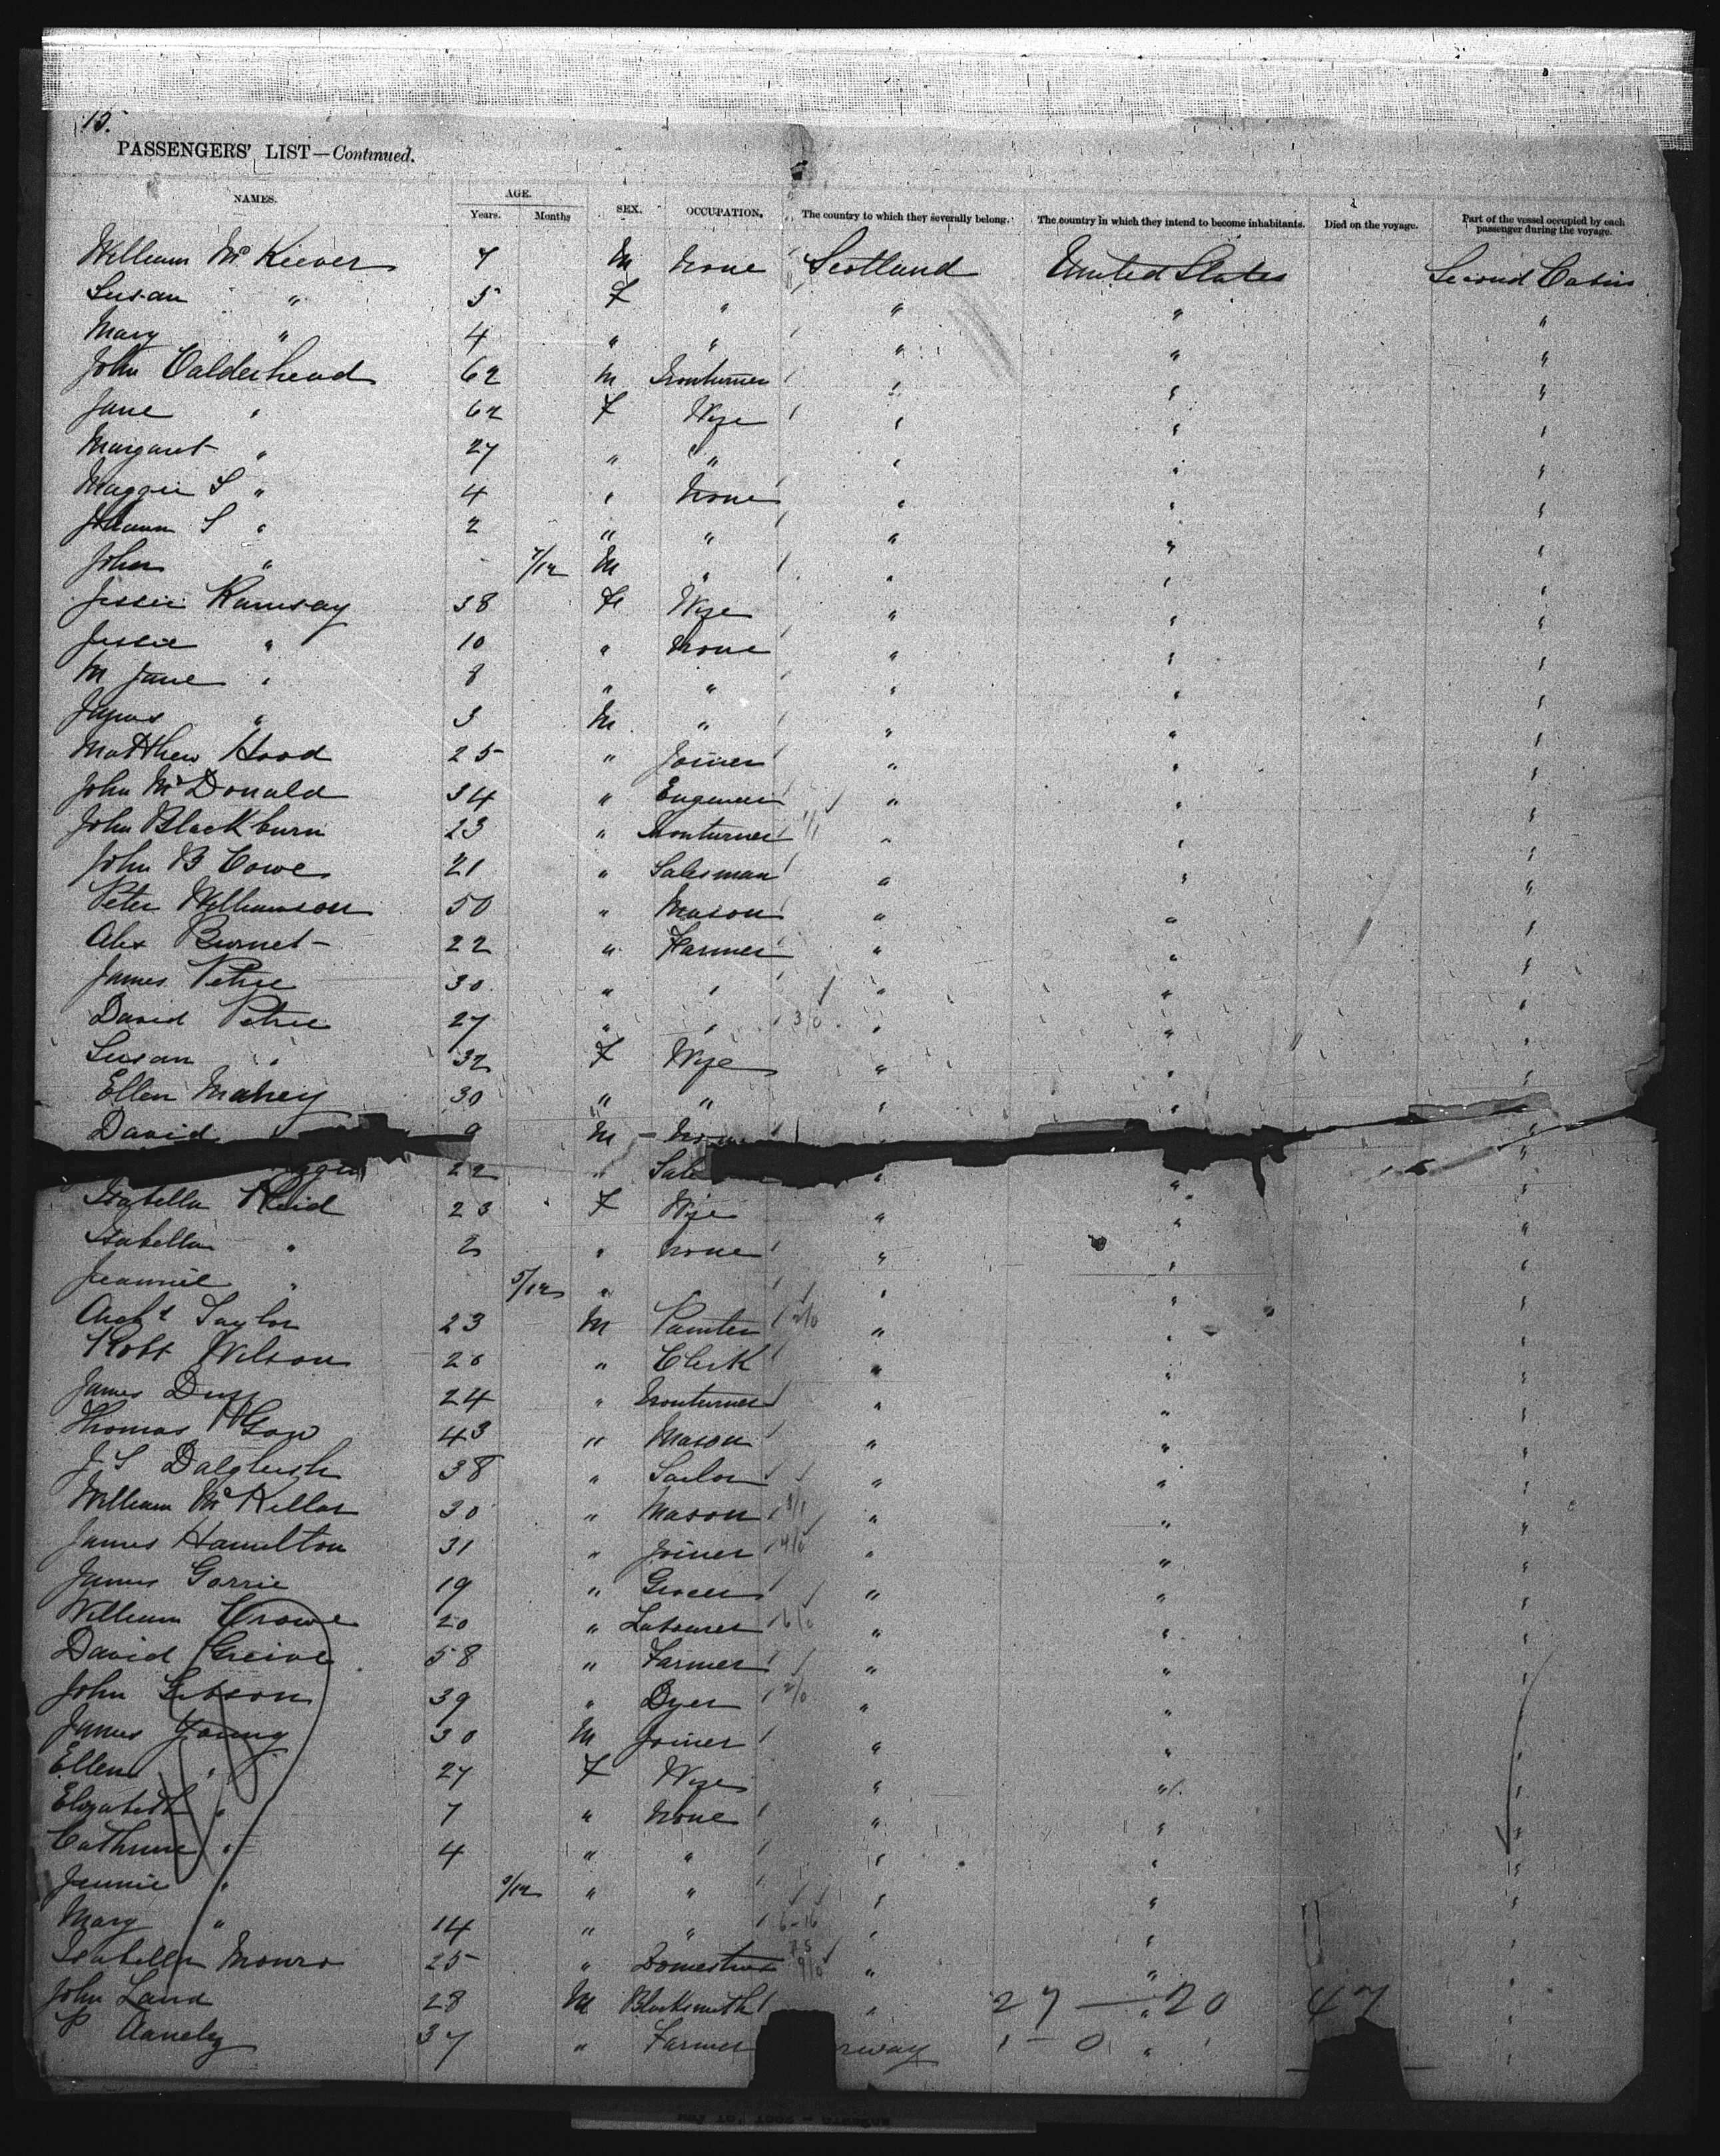 15.
PASSENGERS' LIST—Continued.
NAMES. AGE. Years. Months SEX. OCCUPATION. The country to which they severally belong. The country in which they intend to become inhabitants. Died on the voyage. Part of the vessel occupied by each passenger during the voyage.
William McKiever 7 M None Scotland United States Second Cabin
Susan " 5 F " " " "
Mary " 4 " " " " "
John Calderhead 62 M Ironturner " " "
Jane " 62 F Wife " " "
Margaret " 27 " " " " "
Maggie S " 4 " None " " "
S " 2 " " " " "
John " - 7/12 M " " " "
Jessie Ramsay 38 F Wife " " "
Jessie " 10 " None " " "
M Jane " 8 " " " " "
James " 3 M " " " "
Matthew Hood 25 " Joiner " " "
John McDonald 34 " Engineer " " "
John Blackburn 23 " Ironturner " " "
John B Cowe 21 " Salesman " " "
Peter Williamson 50 " Mason " " "
Alex Burnet 22 " Farmer " " "
James Petrie 30 " " " " "
David Petrie 27 " " 3/0 " " "
Susan " 32 F Wife " " "
Ellen Mahey 30 " " " " "
David 9 M " "
22 " Sale " " "
Isabella Reid 23 F Wife " " "
Isabella " 2 " None " " "
Jeannie " 5/12 " " " "
Archd Taylor 23 M Painter 2/0 " " "
Robt Wilson 20 " Clerk " " "
James Duff 24 " Ironturner " " "
Thomas Gow 43 " Mason " " "
J S Dalgleish 38 " Sailor " " "
William McKellar 30 " Mason 8/1 " " "
James Hamilton 31 " Joiner 4/0 " " "
James Gorrie 19 " Grocer " " "
William Crowe 20 " Labourer 6/0 " " "
David Greive 58 " Farmer " " "
John Gibson 39 " Dyer 2/0 " " "
James Young 30 M Joiner " " "
Ellen " 27 F Wife " " "
Elizabeth " 7 " None " " "
Cathrine " 4 " " " " "
Jennie " 9/12 " " " " "
Mary " 14 " " 6-16 " " "
Isabella Monro 25 " Domestic " " "
John Laird 28 M Blacksmith " 27 — 20 " 47 "
P 37 " Farmer rway 1 - 0 " "